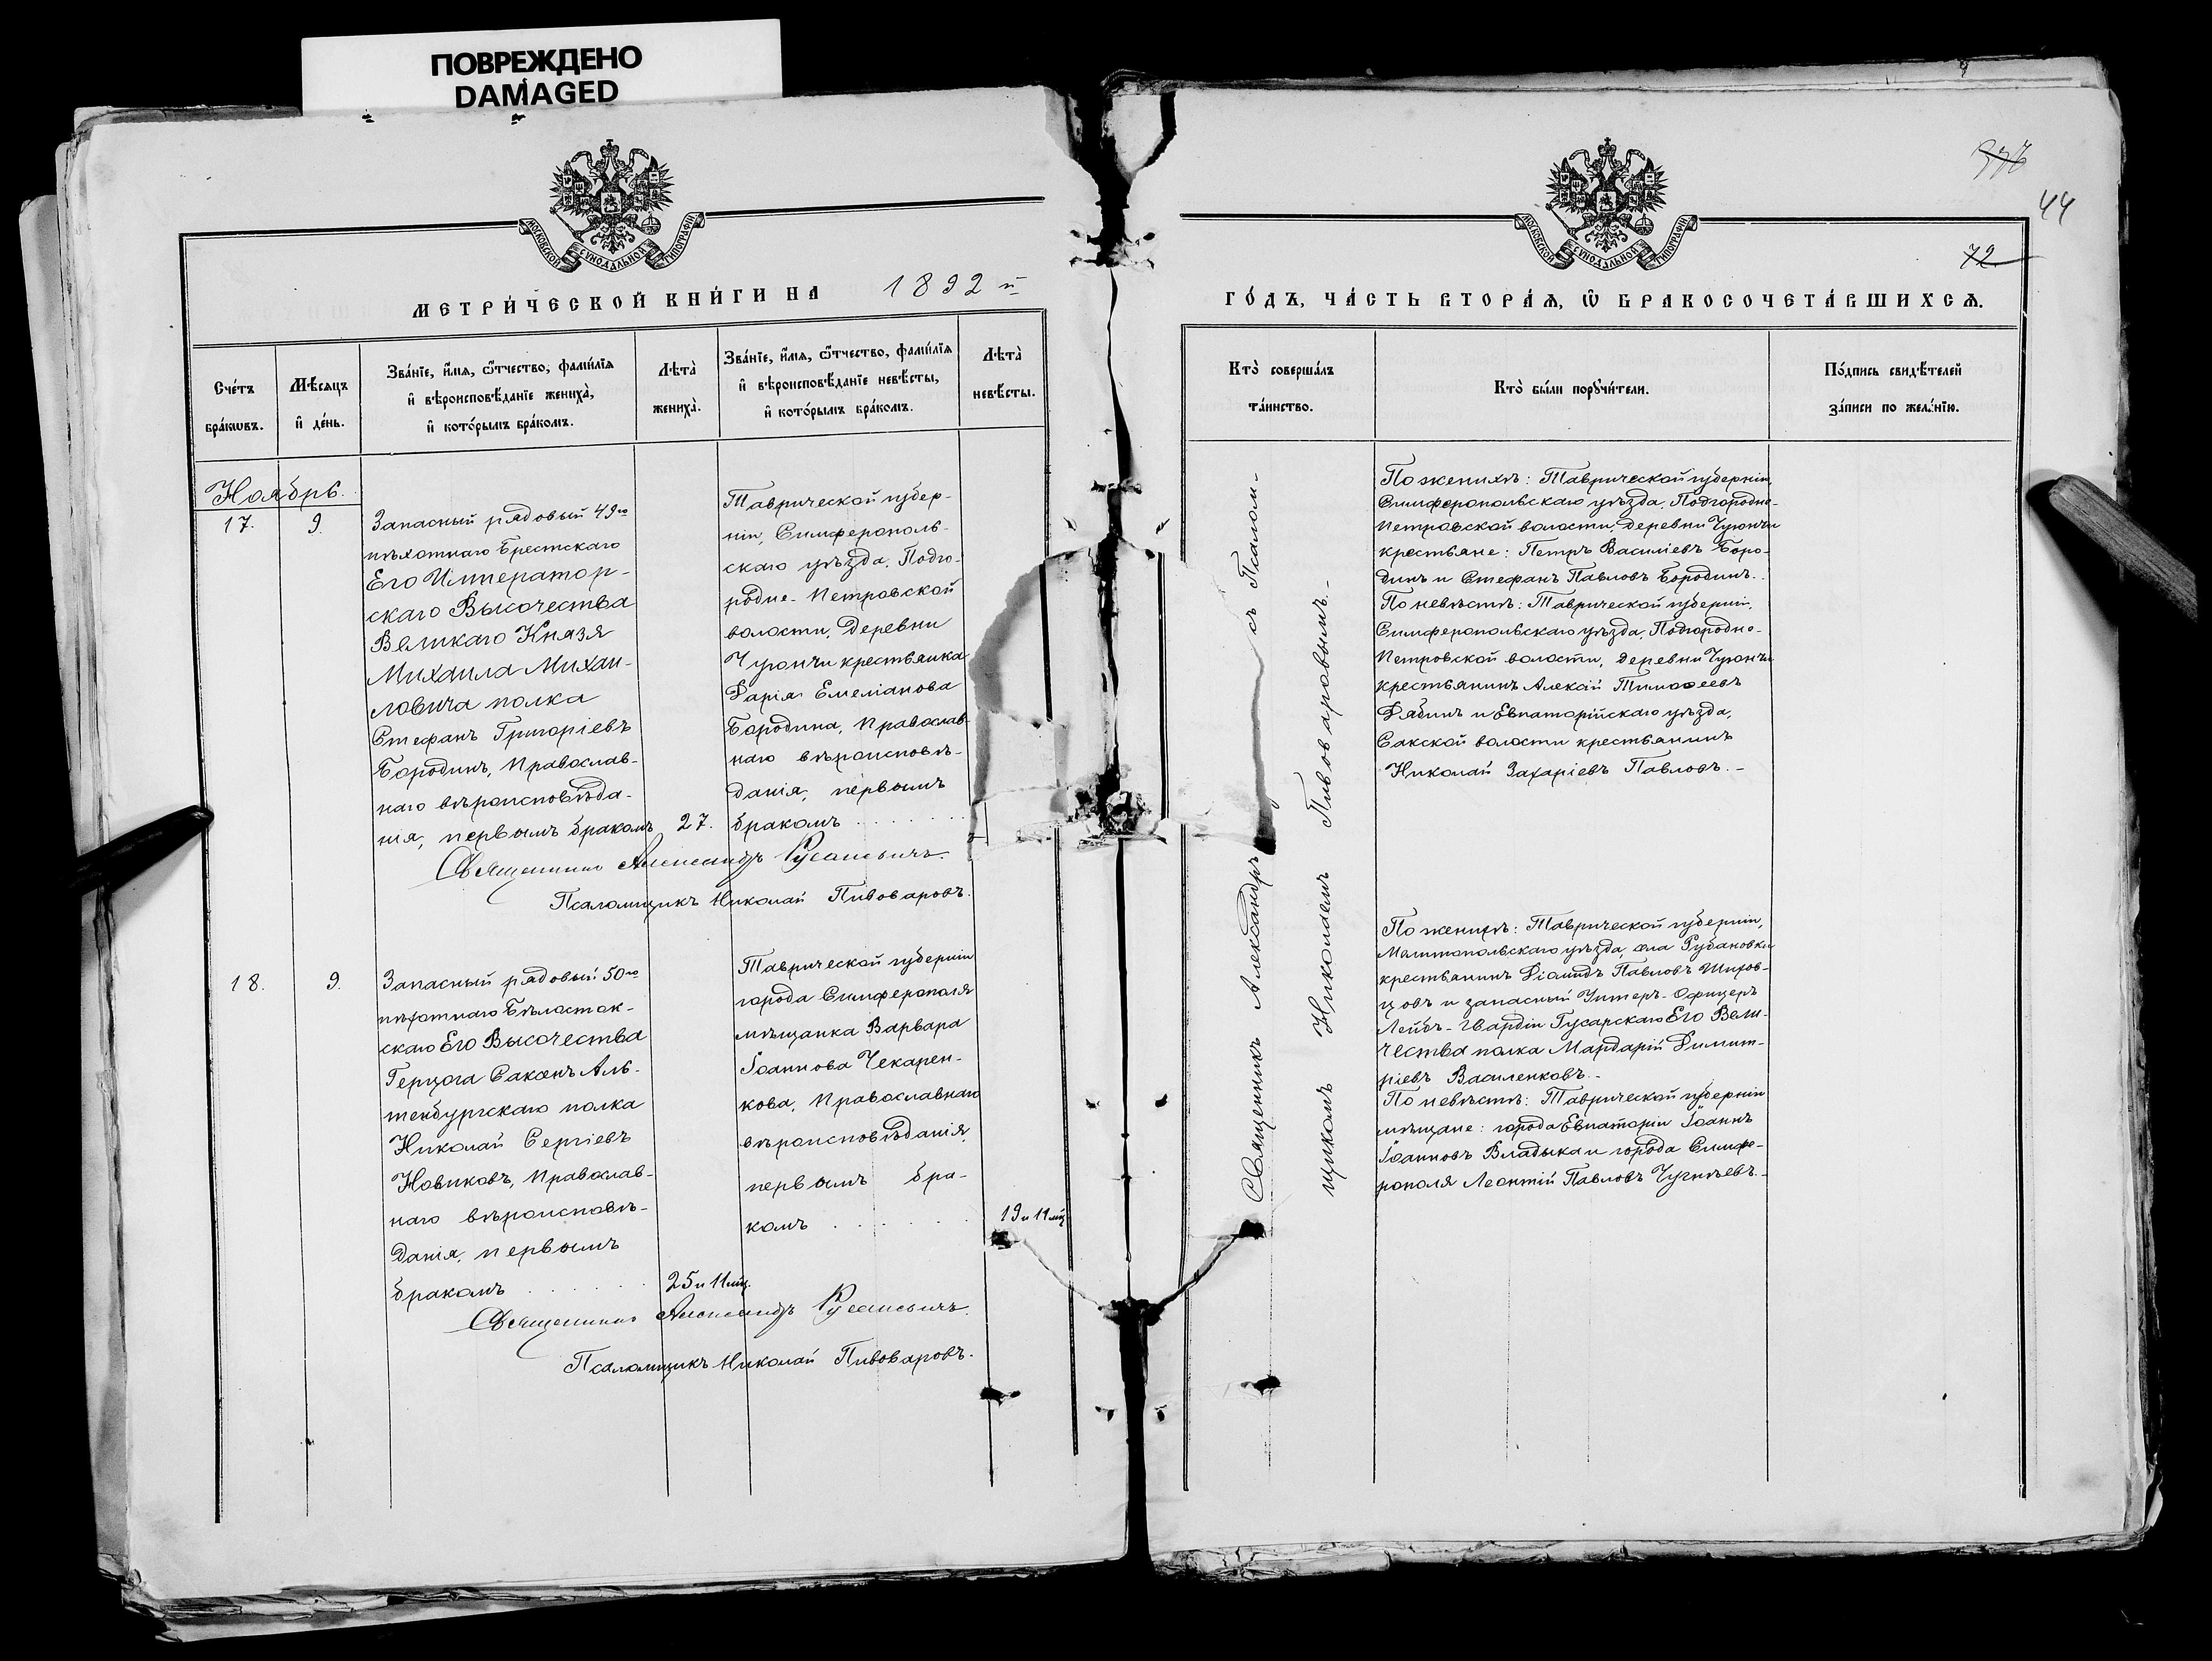 ПОВРЕЖДЕНО
DAMAGED
МОСКОВСКОЙ СУНОДАЛЬНОЙ ТИПОГРАФІИ
МЕТРИ́ЧЕСКОЙ КНИ́ГИ НА 1892 й
Сче́тъ бра́кωвъ.
Мѣ́сяцъ и҆ де́нь.
Зва́нїе, и҆́мѧ, ѻ҆́тчество, фами́лїѧ
и҆ вѣроисповѣ́данїе жениха̀,
и҆ кото́рымъ бра́комъ.
Лѣта̀ жениха̀.
Зва́нїе, и҆́мѧ, ѻ҆́тчество, фами́лїѧ
и҆ вѣроисповѣ́данїе невѣ́сты,
и҆ кото́рымъ бра́комъ.
Лѣта̀ невѣ́сты.
Ноябрь.
17.
9.
Запасный рядовый 49го
пѣхотнаго Брестскаго
Его Император-
скаго Высочества
Великаго Князя
Михаила Михаи-
ловича полка
Стефанъ Григоріевъ
Бородинъ, Православ-
наго вѣроисповѣда-
нія, первымъ бракомъ
27.
Таврической губер-
ніи, Симферополь-
скаго уѣзда, Подго-
родне-Петровской
волости, деревни
Чуюнчи крестьянка
Дарія Емеліанова
Бородина, Православ-
наго вѣроисповѣ-
данія, первымъ
бракомъ
Священникъ Александръ
Псаломщикъ Николай Пивоваровъ.
18.
9.
Запасный рядовый 50го
пѣхотнаго Бѣлосток-
скаго Его Высочества
Герцога Саксенъ Аль-
тенбургскаго полка
Николай Сергіевъ
Новиковъ, Православ-
наго вѣроисповѣ-
данія, первымъ
бракомъ
25 и 11 мѣц.
Таврической губерніи
города Симферополя
мѣщанка Варвара
Іоаннова Чекарен-
кова, Православнаго
вѣроисповѣданія,
первымъ бра-
комъ
19 и 11 мѣц.
Священникъ Александръ
Псаломщикъ Николай Пивоваровъ.
44
72
МОСКОВСКОЙ СУНОДАЛЬНОЙ ТИПОГРАФІИ
ГО́ДЪ, ЧА́СТЬ ВТОРА́Ѧ, Ѽ БРАКОСОЧЕТА́ВШИХСѦ.
Кто̀ соверша́лъ
та́инство.
Кто̀ бы́ли порꙋчи́тели.
По́дпись свидѣ́телей
за́писи по жела́нїю.
Священникъ Александръ съ Псалом-
щикомъ Николаемъ Пивоваровымъ.
По женихѣ: Таврической губерніи,
Симферопольскаго уѣзда, Подгородне-
Петровской волости, деревни Чуюнчи
крестьяне: Петръ Василіевъ Боро-
динъ и Стефанъ Павловъ Бородинъ.
По невѣстѣ: Таврической губерніи,
Симферопольскаго уѣзда, Подгородне-
Петровской волости, деревни Чуюнчи
крестьянинъ Алексій Тимоѳеевъ
Дябинъ и Евпаторійскаго уѣзда,
Сакской волости крестьянинъ
Николай Захаріевъ Павловъ.
По женихѣ: Таврической губерніи,
Мелитопольскаго уѣзда, села Рубановки
крестьянинъ Діомидъ Павловъ
и запасный Унтеръ-Офицеръ
Лейбъ-Гвардіи Гусарскаго Его Вели-
чества полка Мардарій Димит-
ріевъ Василенковъ.
По невѣстѣ: Таврической губерніи
мѣщане: города Евпаторіи Іоаннъ
Іоанновъ Владыка и города Симфе-
рополя Леонтій Павловъ Чугнѣевъ.